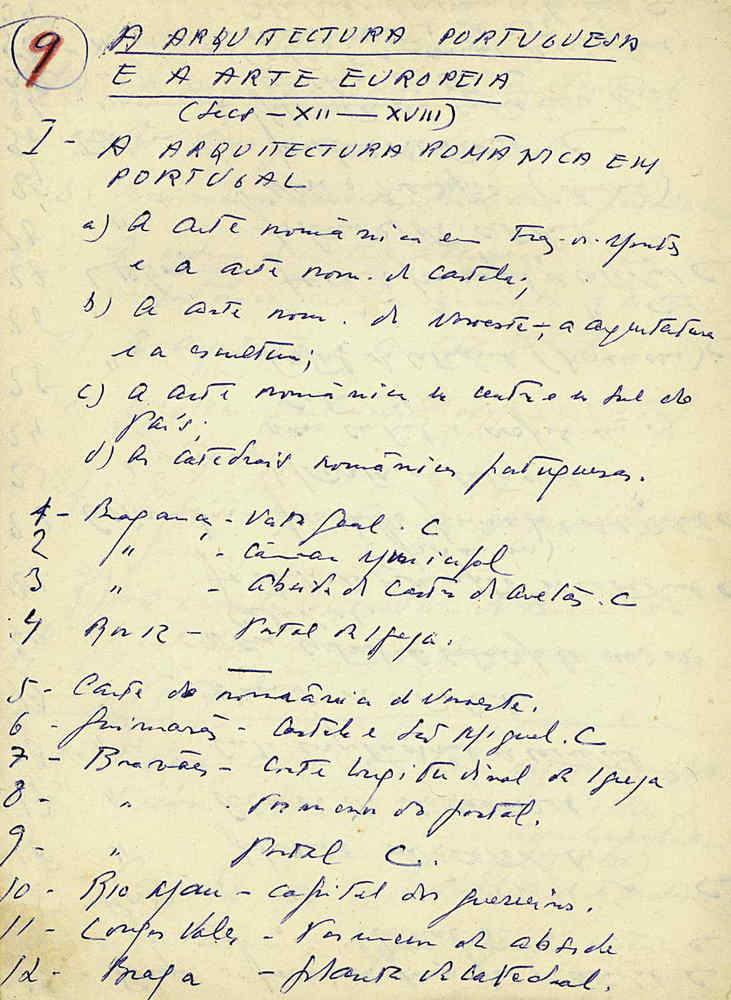 9
A ARQUITECTURA PORTUGUESA
E A ARTE EUROPEIA
(Secs - XII — XVIII)
I - A ARQUITECTURA ROMÂNICA EM
PORTUGAL
a) A arte românica em Traz-os-Montes
e a arte rom. de Castela;
b) A arte rom. do Noroeste, a arquitectura
e a escultura;
c) A arte românica no centro e no sul do
País;
d) As catedrais românicas portuguesas.
1 - Bragança - Vista geral. C
2 " - Câmara Municipal
3 " - Abside de Castro de Avelãs. C
4 Roriz - Portal da Igreja.
5 - Carta do românico do Noroeste.
6 - Guimarães - Castelo e São Miguel. C
7 - Bravães - Corte longitudinal da Igreja
8 - " - Pormenor do portal.
9 - " Portal C.
10 - Rio Mau - Capitel dos guerreiros.
11 - Longos Vales - Pormenor da abside
12 - Braga - Planta da Catedral.